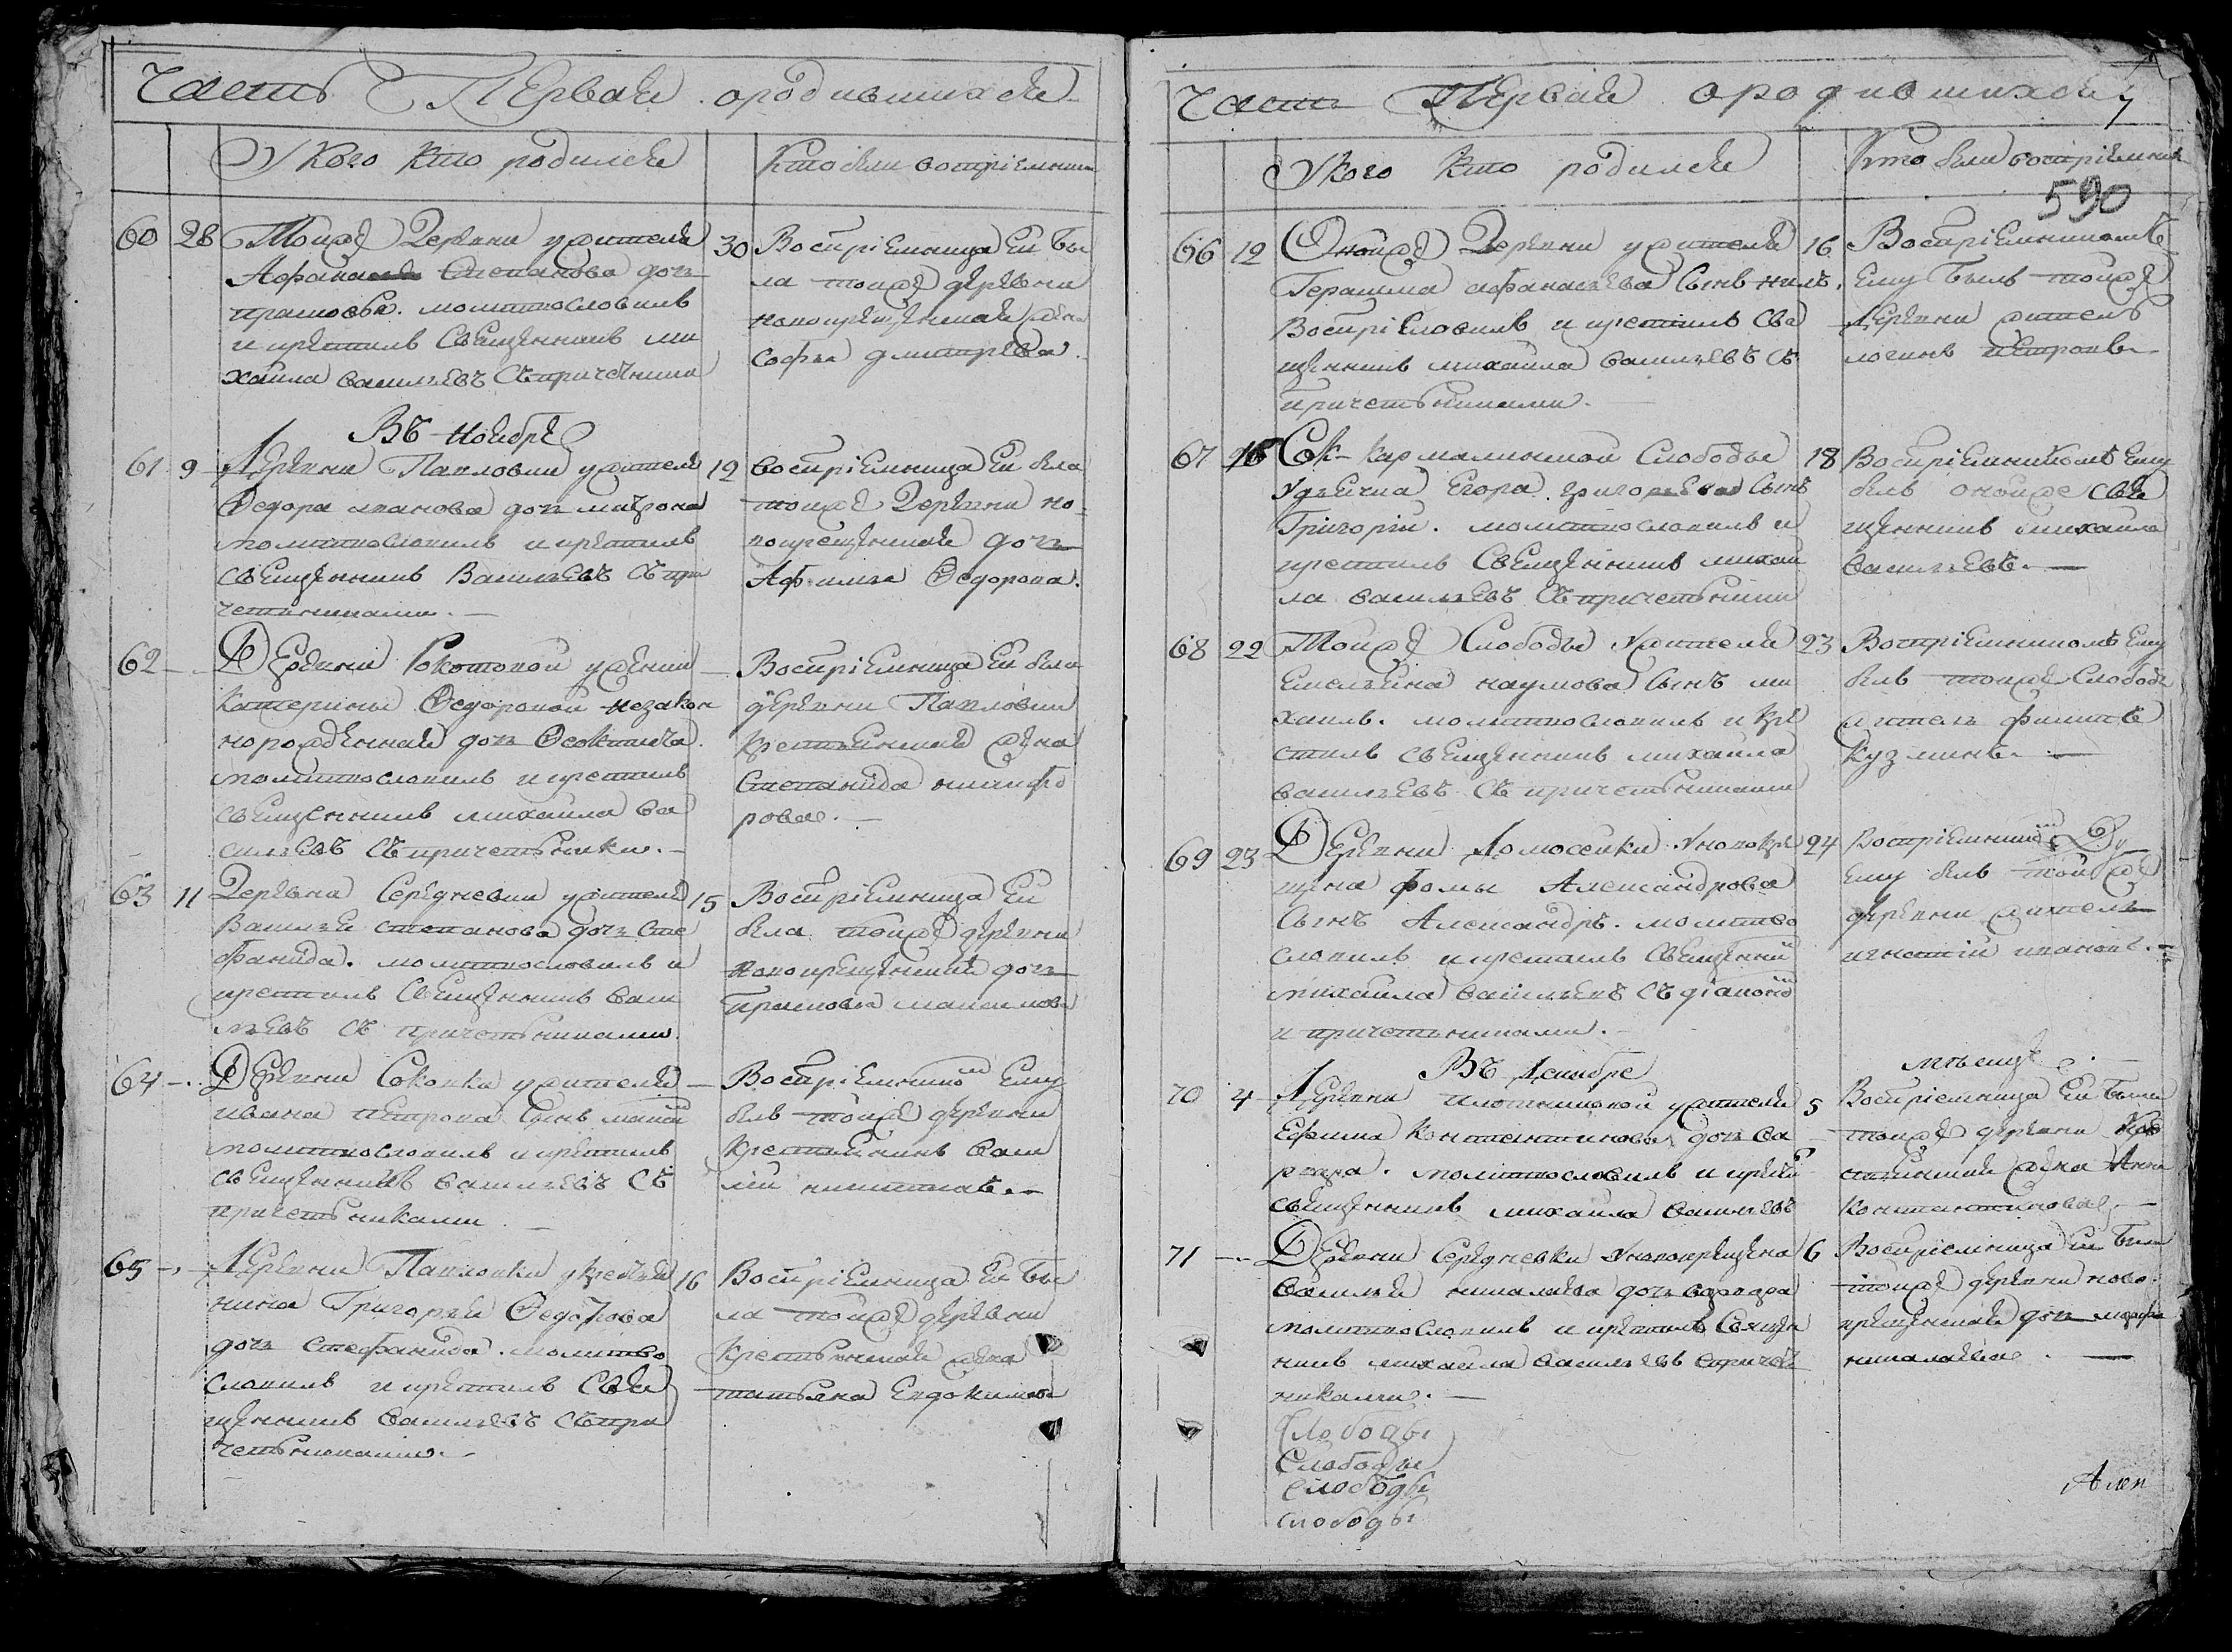 Часть Первая ородившихся
У кого кто родился
Кто были восприемники
60 28 Тойже Деревни ужителя 30
Афанасья Степанова дочь
праскофья. молитвословилъ
и крестилъ Священникъ ми
хайла васильевъ съпричетники
Восприемница ей бы
ла тойже деревни
новокрещенная жена
софья дмитрева.
Въ Ноябре
61 9 Деревни Павловки ужителя 12
Федора иванова дочь матрона
молитвословилъ и крестилъ
священникъ Васильевъ съпри
четниками.
восприемница ей была
тойже Деревни но-
вокрещенная дочь
Афимья Федорова.
62 Деревни Рокотовой ужонки
Катерины Федоровой незакон
норожденная дочь Феоктиста
молитвословилъ и крестилъ
священникъ михайла ва
сильевъ съпричетники.
Восприемница ей была
деревни Павловки
крестьянская жена
Степанида никифо
рова.
63 11 Деревни Середневки ужителя 15
Василья степанова дочь сте
фанида. молитвословилъ и
крестилъ Священникъ васи
льевъ съ причетниками.
Восприемница ей
была тойже деревни
новокрещенская дочь
Прасковья максимова
64 Деревни Соковка ужителя
ивана петрова сынъ
молитвословилъ и крестилъ
священникъ васильевъ съ
причетниками
Восприемникомъ ему
былъ тойже деревни
крестьянинъ васи
лій никитинъ.
65 Деревни Павловки укрестья 16
нина Григорья Федорова
дочь стефанида. молитво
словилъ и крестилъ свя
щенникъ васильевъ съпри
четниками.
Восприемница ей бы
ла тойже деревни
крестьянская жена
татьяна Евдокимова
Часть Первая ородившихся
У кого кто родился
Кто были восприемники
590
66 12 Онойже Деревни ужителя 16
Герасима афанасьева сынъ нилъ.
Восприсловилъ и крестилъ свя
щенникъ михайла васильевъ съ
причетниками.
Восприемникомъ
ему былъ тойже
Деревни житель
логинъ петровъ
67 16 Сок-кармалинской Слободы 18
Удьячка Егора григорьева сынъ
Григорій. молитвословилъ и
крестилъ Священникъ михай
ла васильевъ съпричетники
Восприемникомъ ему
былъ онойже свя
щенникъ михайла
васильевъ.
68 22 Тойже Слободы ужителя 23
Емельяна наумова сынъ ми
хаилъ. молитвословилъ и кре
стилъ священникъ михайла
васильевъ съ причетниками
Восприемникомъ ему
былъ тойже Слободы
житель филипъ
кузминъ.
69 23 Деревни Ломосейки Уновокре 24
щена фомы Александрова
сынъ Александръ. молитво
словилъ и крестилъ священни
михайла васильевъ съ діакономъ
и причетниками.
восприемникомъ
ему былъ тойже
деревни житель
игнатій ивановъ.
Въ Декабре
месяце
70 4 Деревни плотниковой ужителя 5
Ефима Константинова дочь ва
рвара. молитвословилъ и крести
священникъ михайла васильевъ
Восприемница ей была
тойже деревни кре
стьянская жена Анна
Константинова.
71 Деревни Середневки Уновокрещена 6
Василья николаева дочь варвара
молитвословилъ и крестилъ священ
никъ михайла васильевъ съпричет
никами.
Восприемница ей была
тойже деревни ново
крещенская дочь марфа
николаева.
Слободы
Слободы
слободы
слободы
Алек